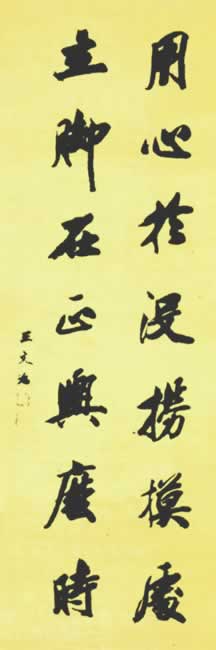 用心於没撈摸處
立脚在正與麼時
王文治